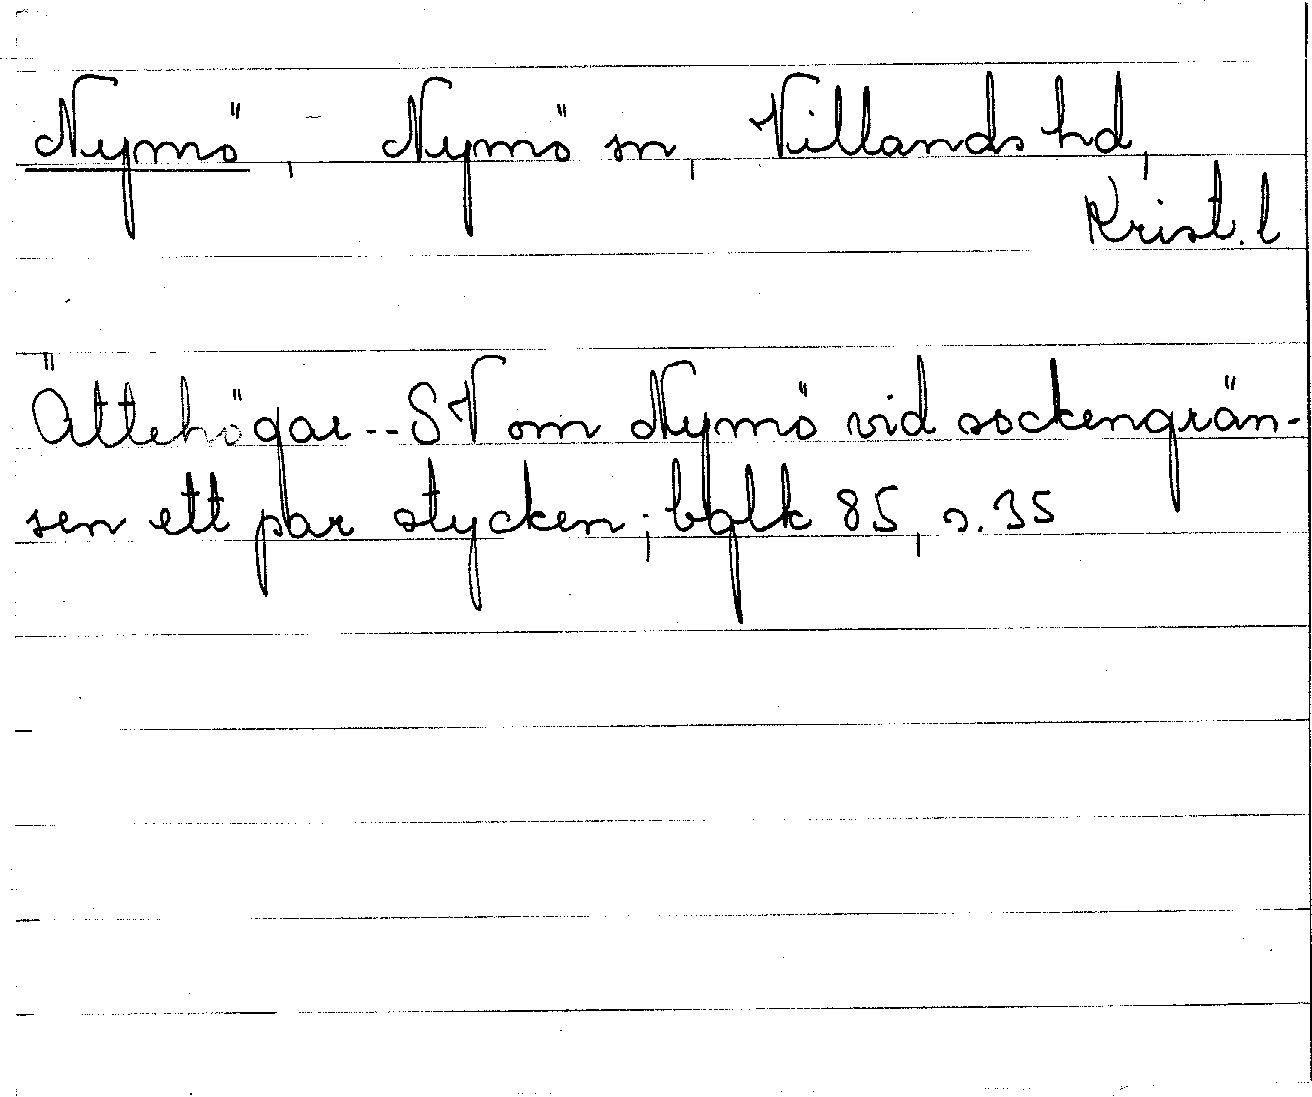 Nymö, Nymö sn, Villands hd,
Krist. l
Ättehögar -- SV om Nymö vid sockengrän-
sen ett par stycken; bglk 85, s. 35